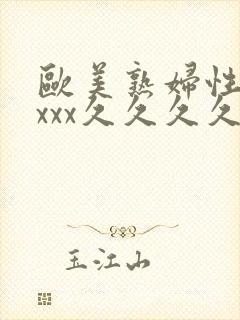 歐美熟婦性
xxx久久久久
玉江山